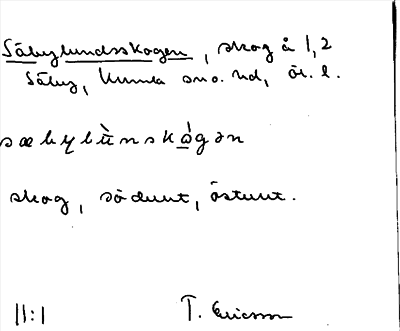 Säbylundsskogen, skog å 1,2
Säby, Kumla sn o. hd, ör. l.
sæbylùnskógən
skog, södunt, östunt.
11:1 T. Ericsson